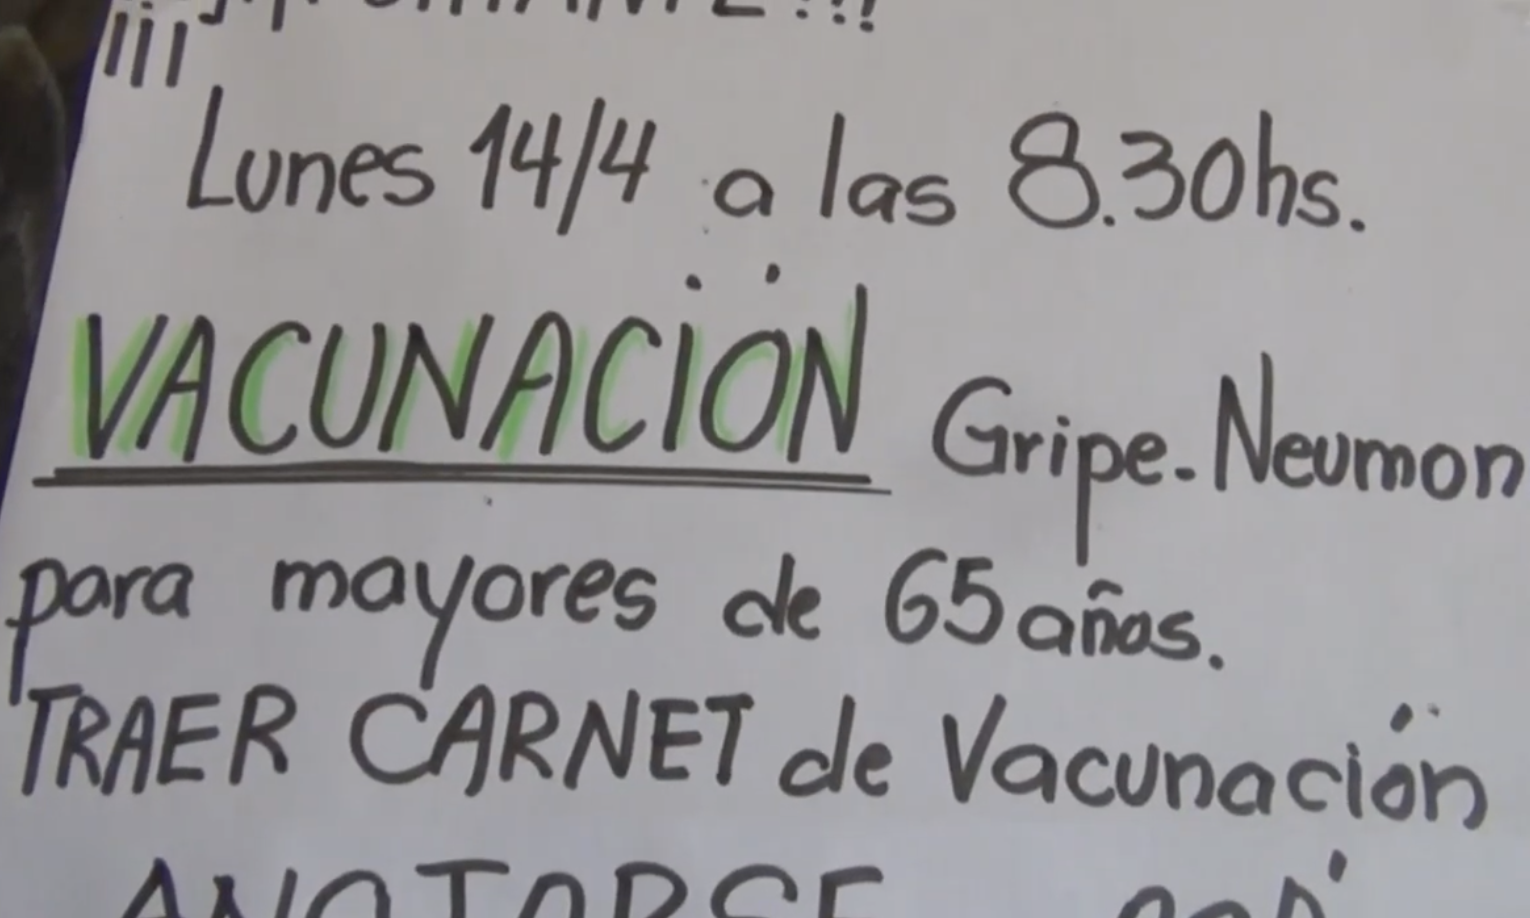 ¡¡¡IMPORTANTE!!!
Lunes 14/4 a las 8.30hs.
VACUNACIÓN Gripe-Neumon
para mayores de 65 años.
TRAER CARNET de Vacunación
ANOTARSE